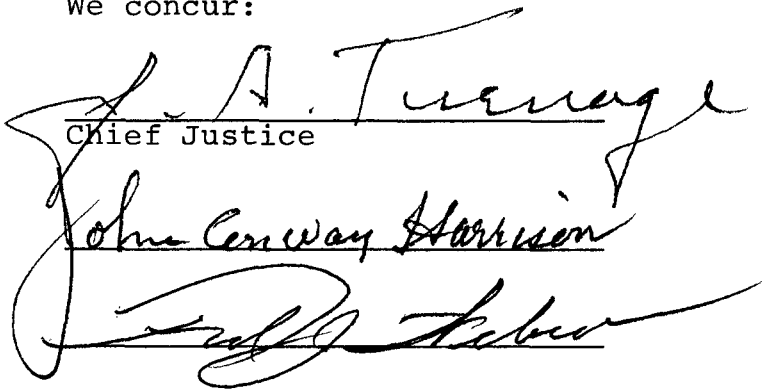 We concur:
J. A. Turnage
Chief Justice
John Conway Harrison
Fred J. Weber